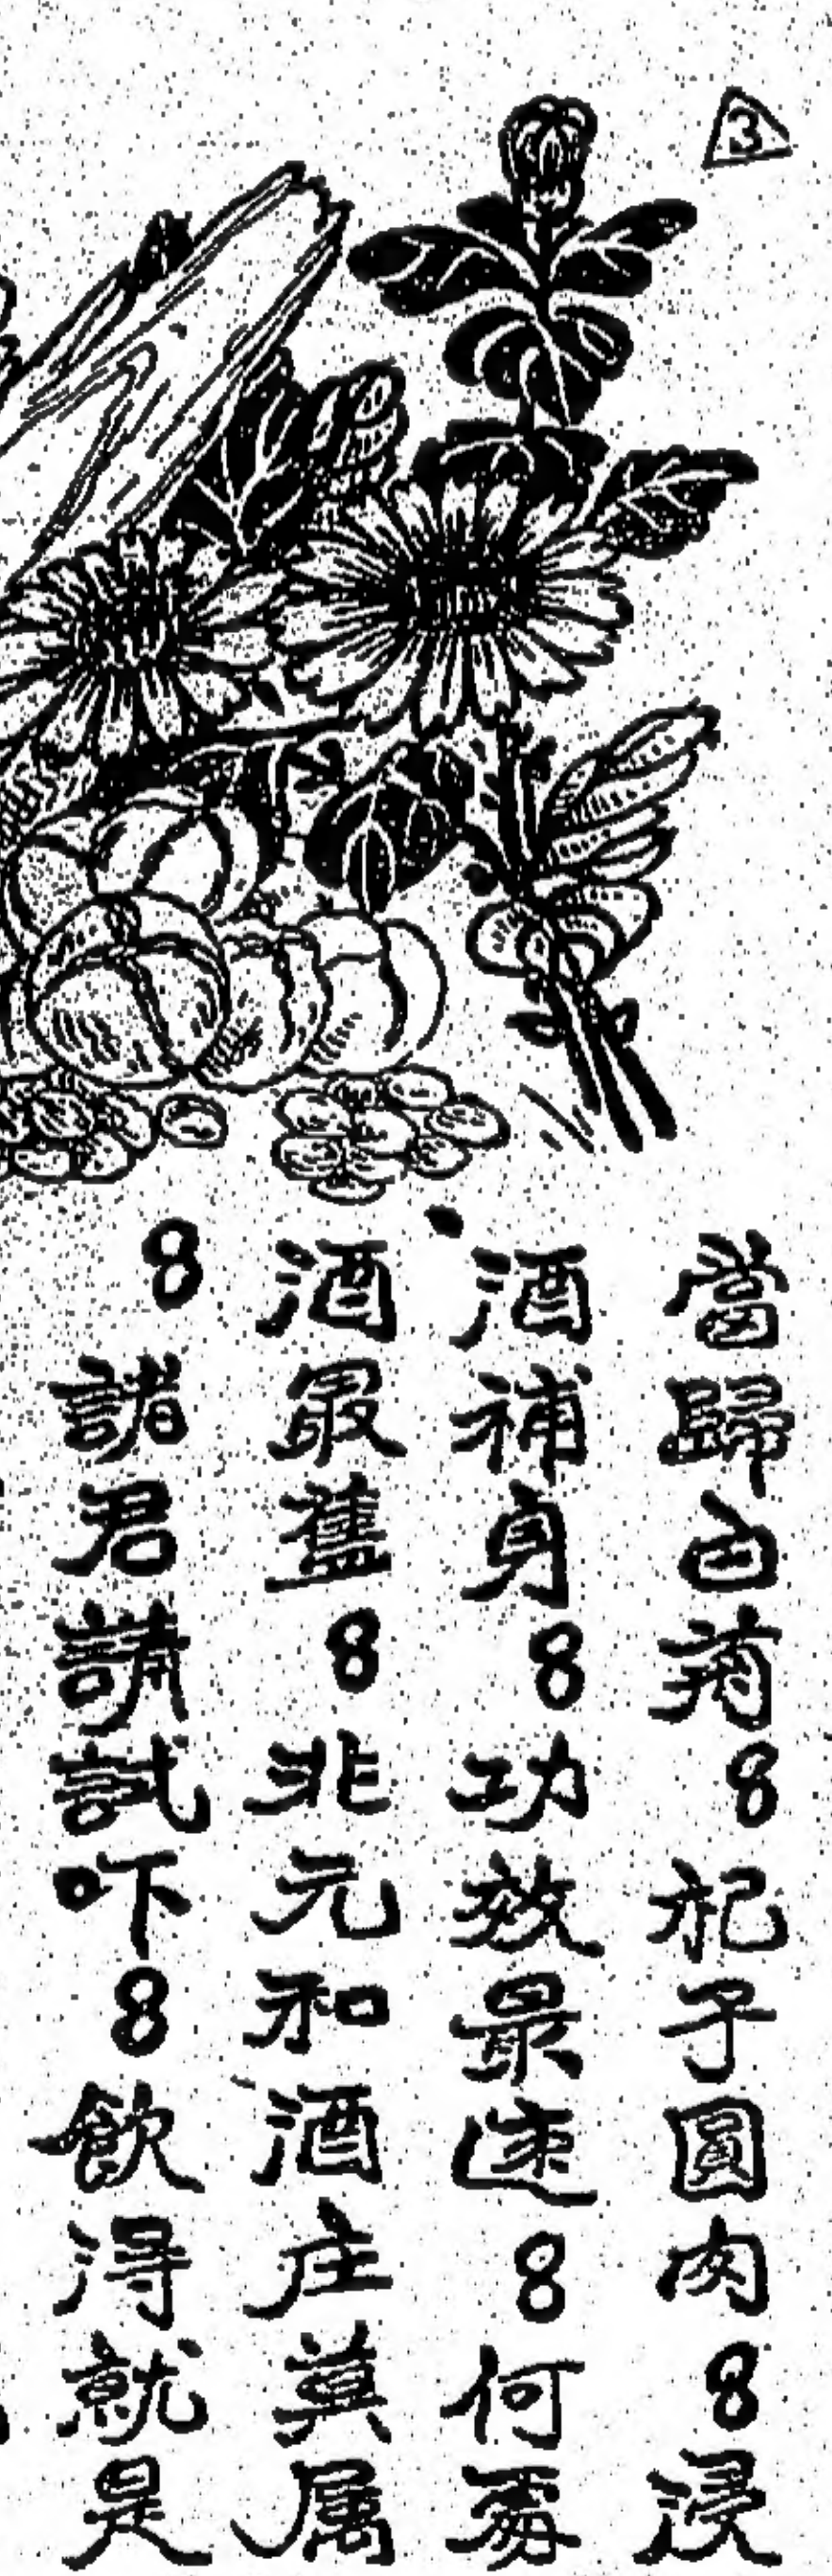 3
當歸白菊8杞子圓肉8浸
酒補身8功效最速8何處
酒最舊8非元和酒庄莫属
8諸君請試吓8飲得就是